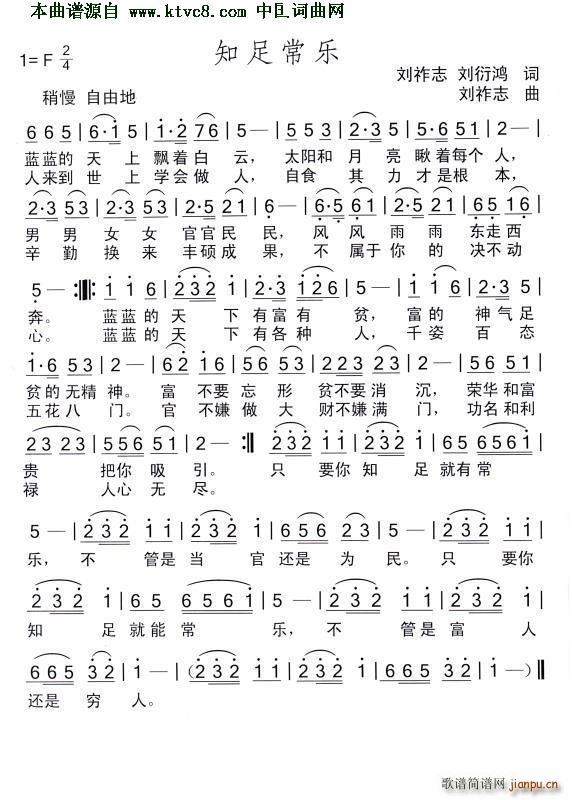 本曲谱源自 www.ktvc8.com 中国词曲网
知足常乐
1=F 2/4
刘祚志 刘衍鸿 词
稍慢 自由地
刘祚志 曲
6 6 5 | 6·1 5 | 1·2 7 6 | 5 — | 5 5 3 | 2·3 5 | 5·6 5 1 | 2 — |
蓝蓝的 天 上 飘着白 云, 太阳和 月 亮 瞅着每个 人,
人来到 世 上 学会做 人, 自食 其 力 才是根 本,
2·3 5 3 | 5 2·3 | 2·3 5 3 | 2·5 2 1 | 6·5 6 | 2·5 2 1 | 6 5 1 6 |
男 男 女 女 官官民 民, 风 风 雨 雨 东走西
辛 勤 换 来 丰硕成 果, 不 属于 你 的 决不动
5 — :‖: 1 1 6 | 2 3 2 1 | 2·3 1 2 6 | 5 — | 1 1 6 | 5 3 5 |
奔。 蓝蓝的 天 下 有富有 贫, 富的 神气足
心。 蓝蓝的 天 下 有各种 人, 千姿 百态
1·6 5 3 | 2 — | 6 2 1 6 | 5 3 5 | 2 2 3 2 3 | 5 — | 5 3 5 |
贫的无精 神。 富 不要 忘 形 贫不要消 沉, 荣华和富
五花八 门。 官 不嫌 做 大 财不嫌满 门, 功名和利
2 3 2 3 | 5 5 6 5 1 | 2 — :‖ 2 3 2 1 1 | 2 3 2 1 | 6 5 6 5 6 1 |
贵 把你 吸 引。 只 要你 知 足 就有 常
禄 人心 无 尽。
5 — | 2 3 2 1 1 | 2 3 2 1 | 6 5 6 2 3 | 5 — | 2 3 2 1 1 |
乐, 不 管是 当 官 还是 为 民。 只 要你
2 3 2 1 | 6 5 6 5 6 1 | 5 — | 2 3 2 1 1 | 2 3 2 1 |
知 足 就能 常 乐, 不 管是 富 人
6 6 5 3 2 | 1 — | 1 — (2 3 2 1 | 2 3 2 1 | 6 6 5 3 2 | 1 — )‖
还是 穷 人。
歌谱简谱网
jianpu.cn